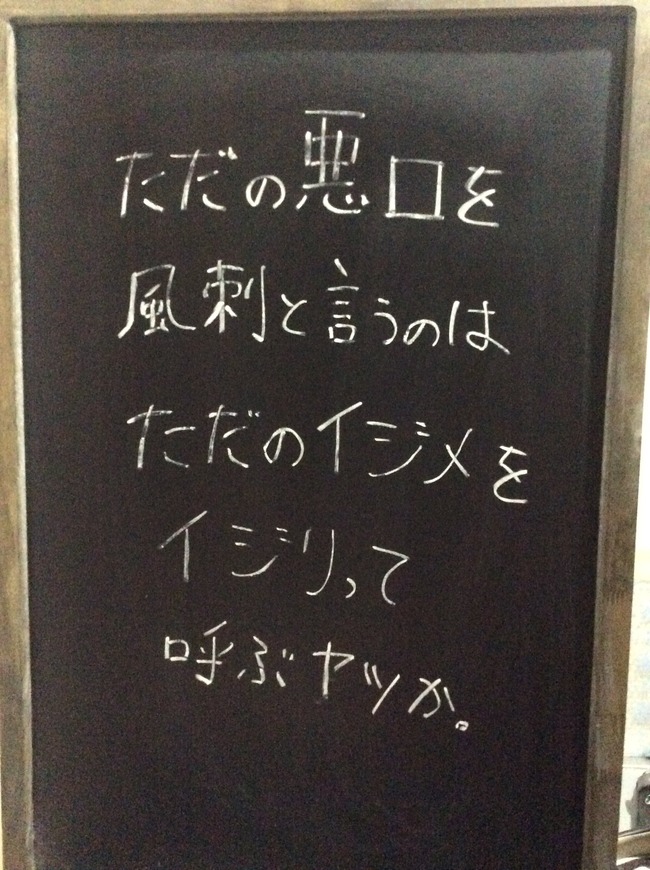 ただの悪口を
風刺と言うのは
ただのイジメを
イジリって
呼ぶヤツか。